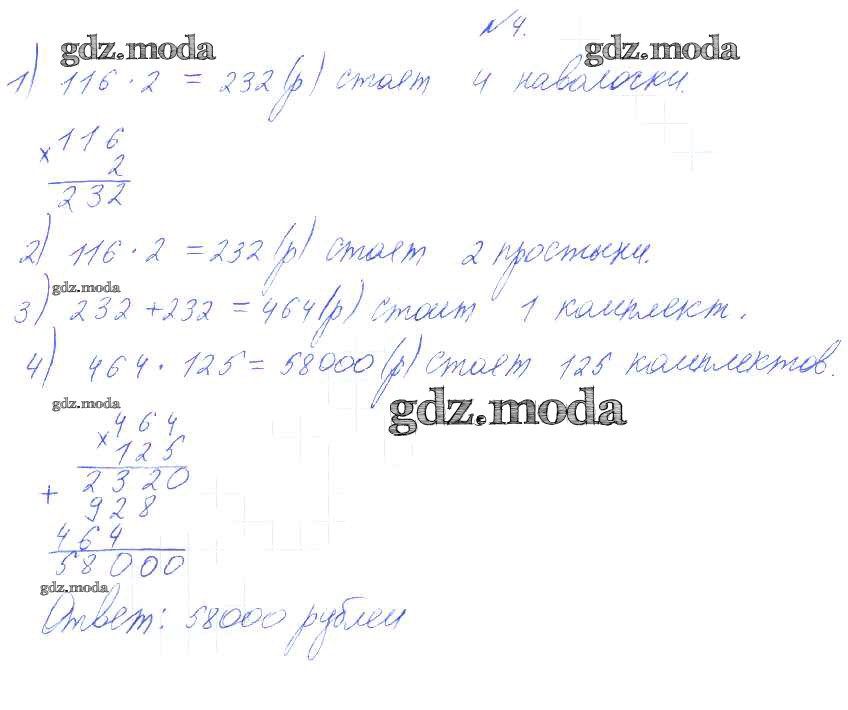 №4.
gdz.moda gdz.moda
1) 116 · 2 = 232 (р) стоят 4 наволочки.
116
× 2
232
2) 116 · 2 = 232 (р) стоят 2 простыни.
gdz.moda
3) 232 + 232 = 464 (р) стоит 1 комплект.
4) 464 · 125 = 58000 (р) стоят 125 комплектов.
gdz.moda gdz.moda
464
× 125
2320
+ 928
464
58000
gdz.moda
Ответ: 58000 рублей